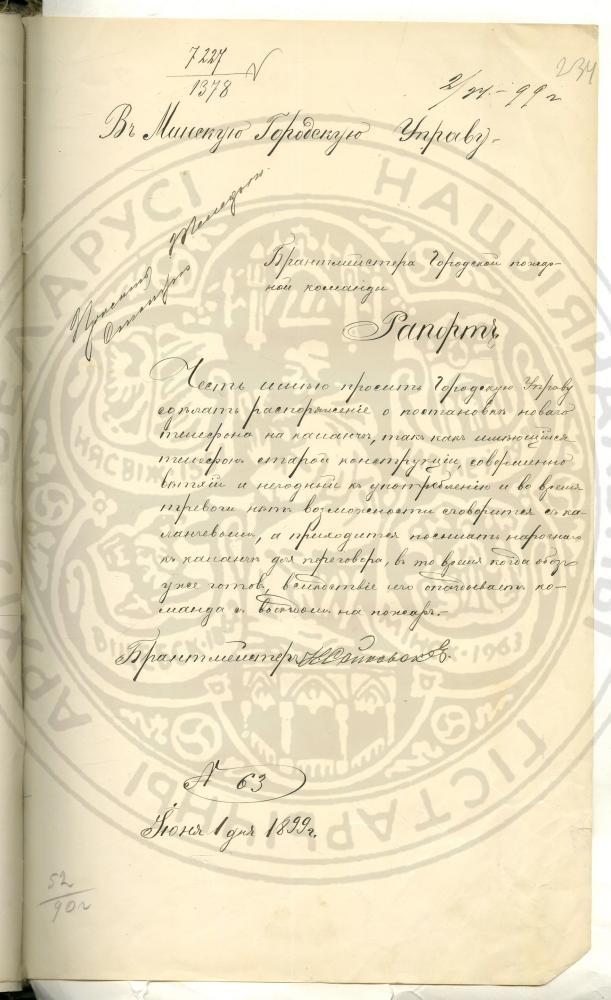 7227
1378
2/VI - 99 г
234
Въ Минскую Городскую Управу.
Брантмейстера Городской пожар-
ной команды
Рапортъ
Честь имѣю просить Городскую Управу
сдѣлать распоряженіе о постановкѣ новаго
телефона на каланчѣ, такъ какъ имѣющійся
телефонъ старой конструкціи, совершенно
ветхій и негодный къ употребленію и во время
тревоги нѣтъ возможности сговорится съ ка-
ланчевымъ, а приходится посылать нарочнаго
къ каланчѣ для переговора, въ то время когда обозъ
уже готовъ, вслѣдствіе чего опаздываетъ ко-
манда къ выѣздомъ на пожаръ.
Брантмейстеръ
№ 63
Іюня 1 дня 1899 г.
52
90 г
НАЦЫЯНАЛЬНЫ
ГІСТАРЫЧНЫ
БЕЛАРУСІ
1963